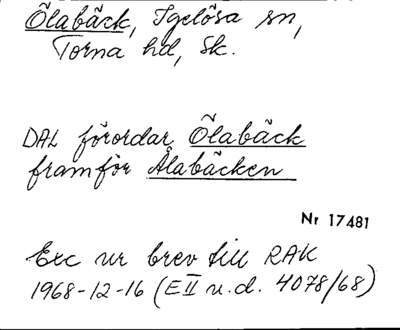 Ölabäck, Igelösa sn,
Torna hd, Sk.
DAL förordar Ölabäck
framför Ålabäcken
Nr 17481
Exc ur brev till RAK
1968-12-16 (E II u.d. 4078/68)